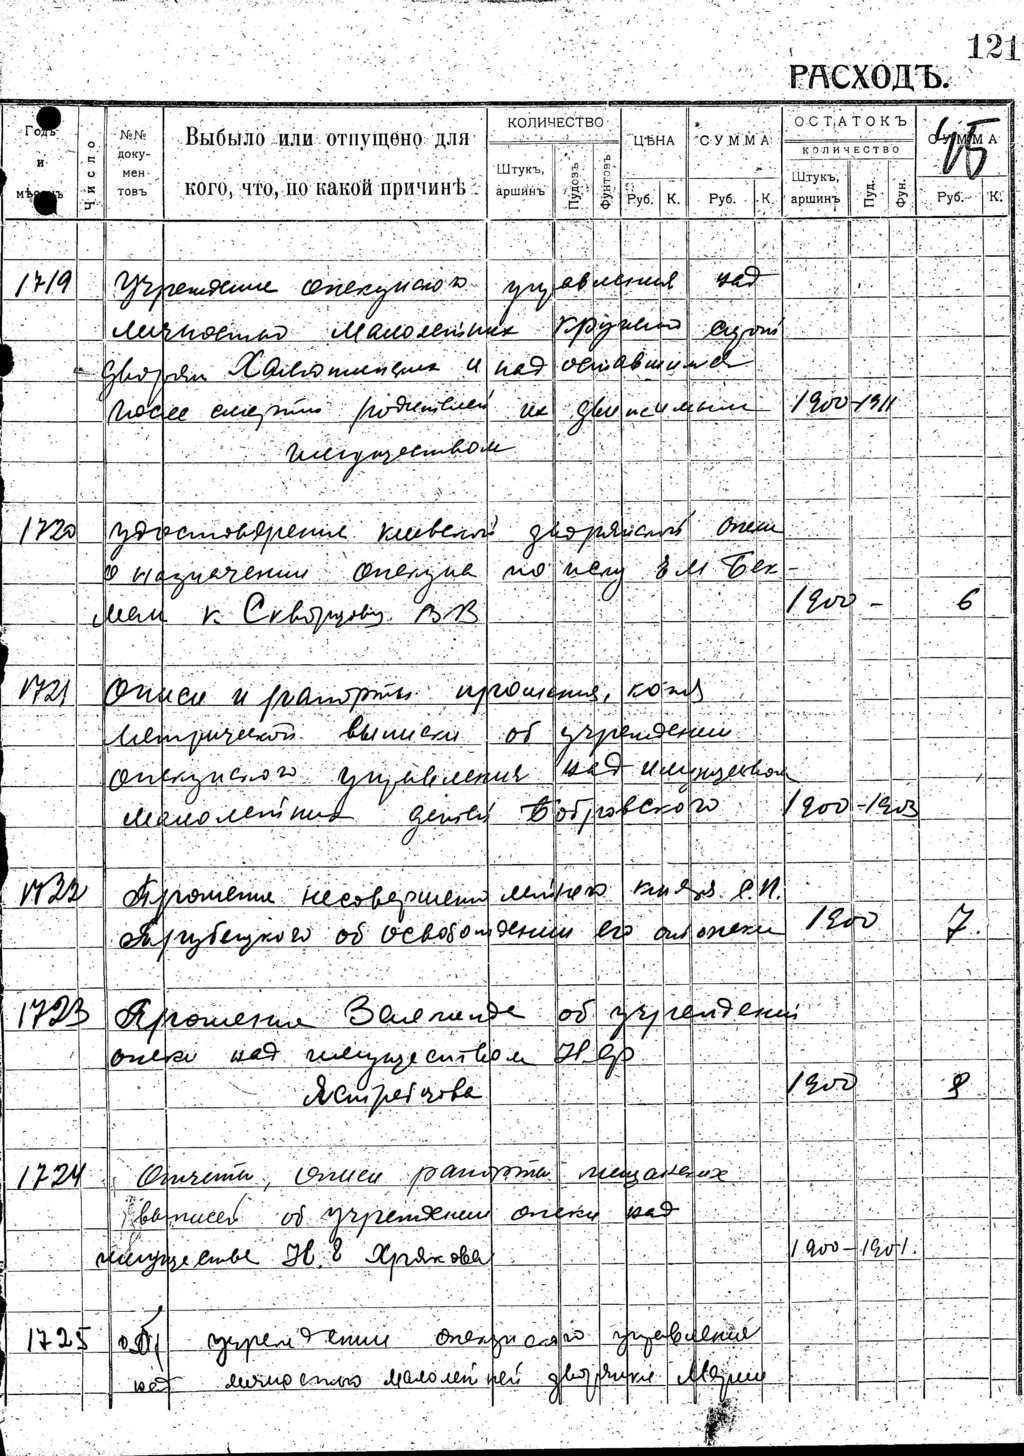 121
РАСХОДЪ.
45
Годъ и мѣсяцъ
Число
№№ доку-ментовъ
Выбыло или отпущено для
кого, что, по какой причинѣ
КОЛИЧЕСТВО
Штукъ, аршинъ
Пудовъ
Фунтовъ
ЦѢНА
Руб. К.
СУММА
Руб. К.
ОСТАТОКЪ
КОЛИЧЕСТВО
Штукъ, аршинъ
Пуд.
Фун.
СУММА
Руб. К.
1719 Учреждение опекунского управления над
личностью малолетних круглых сирот
дворян и над оставшимся
после смерти родителей их движимым 1900-1911
имуществом
1720 удостоверения киевской дворянской опеки
о назначении опекуна по иску Бек-
мен к. Скворцову ВВ 1900 - 6
1721 Описи и рапорты прошения, копия
метрической выписки об учреждении
опекунского управления над имуществом
малолетних детей Бобровского 1900-1903
1722 Прошение несовершеннолетнего князя
Трубецкого об освобождении его от опеки 1900 7.
1723 Прошение об учреждении
опеки над имуществом Н
Ястребцова 1900 8
1724 Отчеты, описи рапорты мещанских
выписей об учреждении опеки над
имуществе Н. Е Хрякова 1900-1901.
1725 об учреждении опекунского управления
над личностью малолетней дворянки Марии